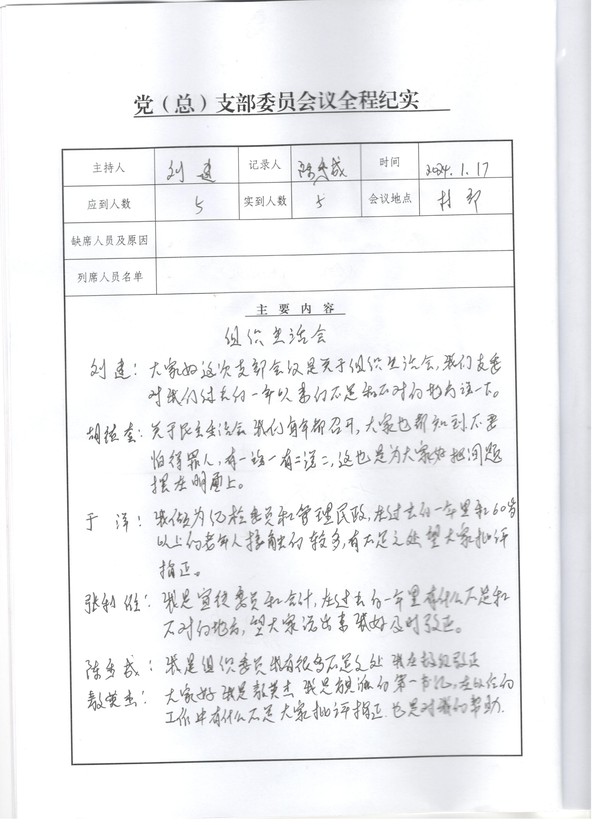 党（总）支部委员会议全程纪实
主持人 刘建 记录人 陈 成 时间 2024.1.17
应到人数 5 实到人数 5 会议地点 村部
缺席人员及原因
列席人员名单
主要内容
组织生活会
刘建：大家好这次支部会议是关于组织生活会，我们支委
对我们过去的一年以来的不足和不对的地方说一下。
关于民主生活会我们每年都召开，大家也都知到不要
怕得罪人，有一说一有二说二，这也是为大家好把问题
摆在明面上。
于洋：我做为纪检委员和管理民政，在过去的一年里和60岁
以上的老年人接触的较多，有不足之处望大家批评
指正。
张利 ：我是宣传委员和会计，在过去的一年里有什么不足和
不对的地方，望大家说出来我好及时改正。
陈 成：我是组织委员我有很多不足之处 我在 改正
大家好 我是 杰 我是 派的第一书记，在以往的
工作中有什么不足 大家批评指正 也是对我的帮助.